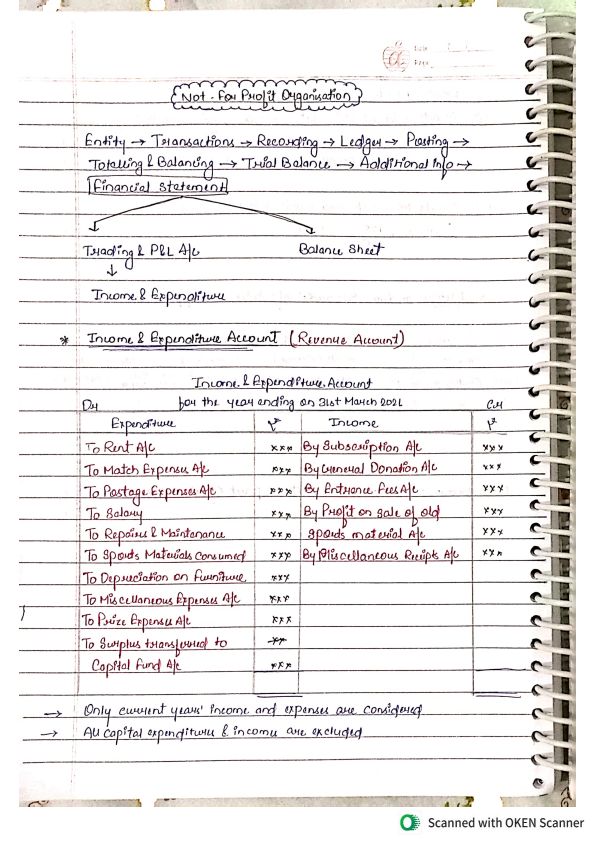 Date
Page
Not-For Profit Organisation
Entity → Transactions → Recording → Ledger → Posting →
Totalling & Balancing → Trial Balance → Additional Info →
Financial Statement
Trading & P&L A/c Balance Sheet
↓
Income & Expenditure
* Income & Expenditure Account (Revenue Account)
Income & Expenditure Account
Dr for the year ending on 31st March 2021 Cr
Expenditure ₹ Income ₹
To Rent A/c xxx By Subscription A/c xxx
To Match Expenses A/c xxx By General Donation A/c xxx
To Postage Expenses A/c xxx By Entrance Fees A/c xxx
To Salary xxx By Profit on Sale of old xxx
To Repairs & Maintenance xxx Sports material A/c xxx
To Sports Materials Consumed xxx By Miscellaneous Receipts A/c xxx
To Depreciation on Furniture xxx
To Miscellaneous Expenses A/c xxx
To Prize Expenses A/c xxx
To Surplus transferred to
Capital Fund A/c xxx
→ Only current years' income and expenses are considered
→ All capital expenditures & incomes are excluded
Scanned with OKEN Scanner